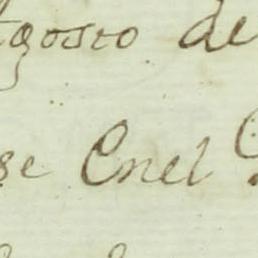 Agosto de
se Enel